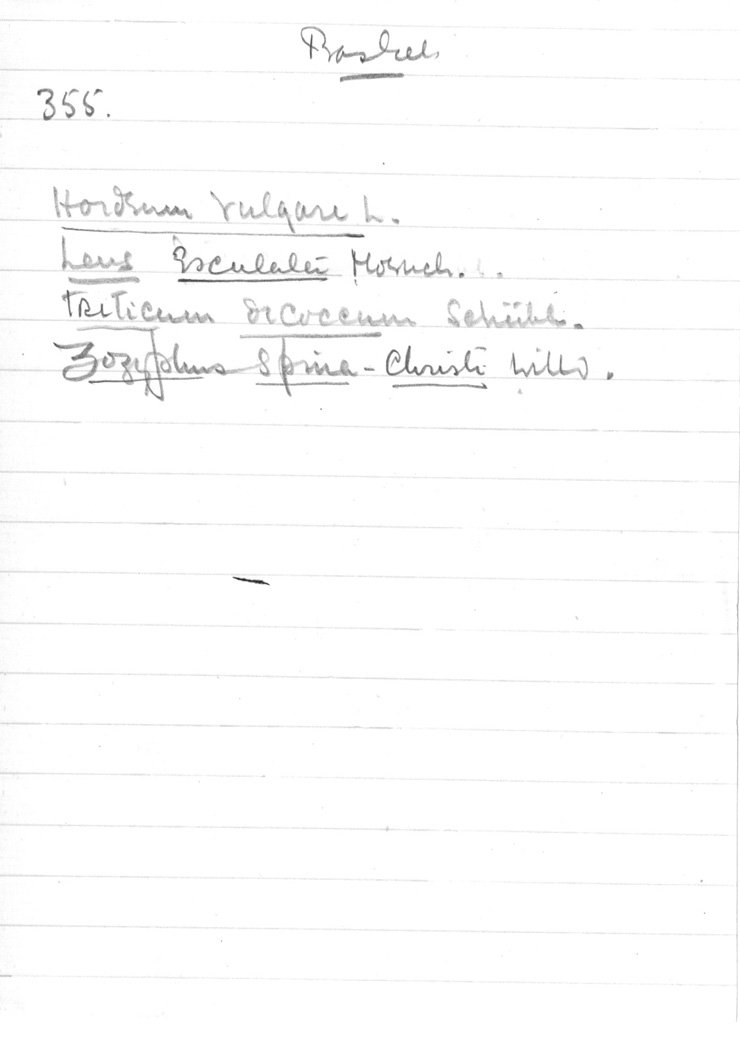 Baskets
355.
Hordeum vulgare L.
Lens Esculenta Moench.
Triticum dicoccum Schübl.
Zozyphus Spina-Christi Willd.